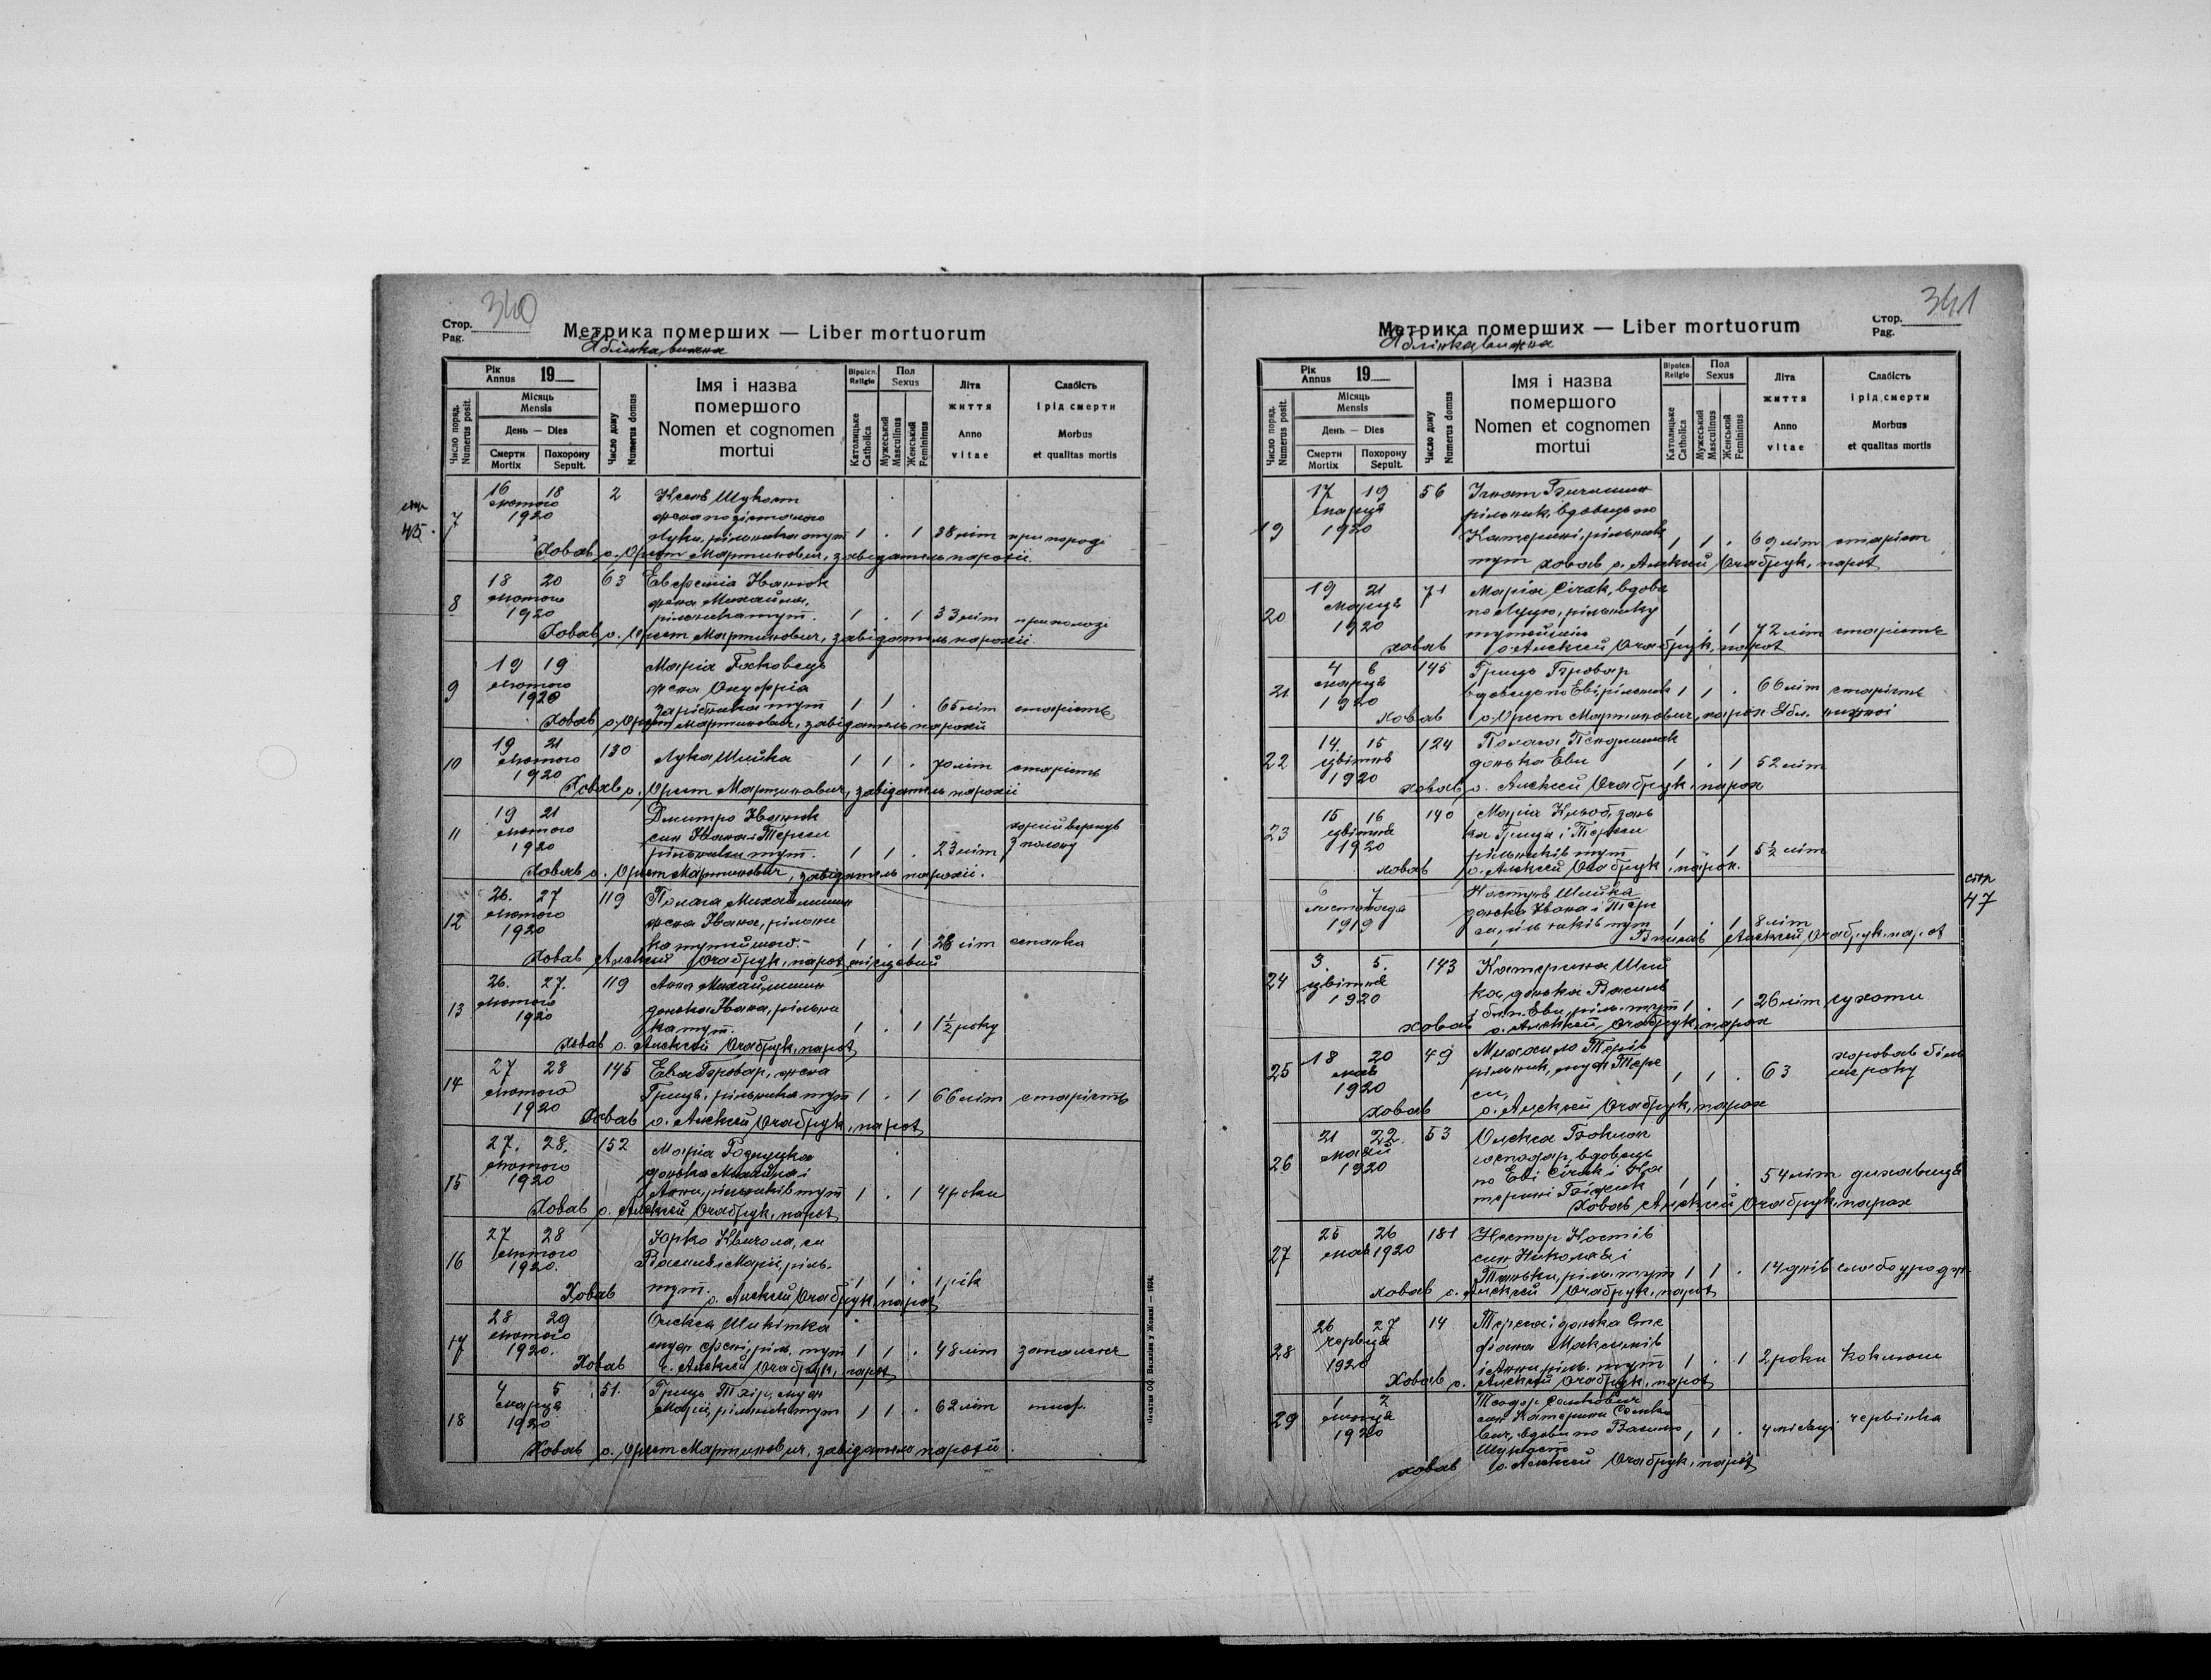 340
Стор.
Pag.
Метрика померших — Liber mortuorum
Яблінка вижна
Число поряд.
Numerus posit.
Рік
Annus 19
Місяць
Mensis
День — Dies
Смерти
Mortix
Похорону
Sepult.
Число дому
Numerus domus
Імя і назва
помершого
Nomen et cognomen
mortui
Віроісп.
Religio
Католицьке
Catholica
Пол
Sexus
Мужеський
Masculinus
Женський
Femininus
Літа
життя
Anno
vitae
Слабість
і рід смерти
Morbus
et qualitas mortis
стр
45.
7 16 18 2
лютого
1920
жена
Луки, рільника тут 1 . 1 38 літ при породі
Ховав о. Орест Мартинович, завідатель парохії.
8 18 20 63 Евфемія Іванюк
лютого жена Михайла,
1920 рільника тут. 1 . 1 33 літ при пологі
Ховав о. Орест Мартинович, завідатель парохії
9 19 19 Марія
лютого жена Онуфрія
1920 зарібника тут 1 1 . 65 літ старість
Ховав о. Орест Мартинович, завідатель парохії
10 19 21 130
лютого Лука Шийка 1 1 . 70 літ старість
1920
Ховав о. Орест Мартинович, завідатель парохії
11 19 21 Дмитро Іванюк
лютого син Івана і Терези хорий вернув
1920 рільники тут. 1 1 . 23 літ з полону
Ховав о. Орест Мартинович, завідатель парохії.
12 26. 27 119 Полага Михайлишин
лютого жена Івана, рільни
1920 ка тутейшого- 1 . 1 28 літ
Ховав Алексій Очабрук, парох місцевий
13 26. 27. 119 Анна Михайлишин
лютого донька Івана, рільни
1920 ка тут. 1 . 1 1½ року
Ховав о. Алексій Очабрук, парох
14 27 28 145 Ева Бровар, жена
лютого Гриця, рільника тут 1 . 1 66 літ старість
1920
Ховав о. Алексій Очабрук, парох
15 27. 28. 152 Марія
лютого донька Михайла і
1920 Анни, рільників тут 1 . 1 4 роки
Ховав о. Алексій Очабрук, парох
16 27 28 Юрко Квичола, си
лютого Василя і Марії, ріль.
1920. тут. 1 1 . 1 рік
Ховав о. Алексій Очабрук, парох
17 28 29 Олекса Шикітка
лютого муж Фені, ріль. тут 1 1 . 48 літ запаленє
1920.
Ховав о. Алексій Очабрук, парох
18 4 5 51. Гриць, муж
марця Марії, рільник тут 1 1 . 62 літ тиф.
1920
Ховав о. Орест Мартинович, завідатель парохії.
Печатня ОО. Василіян у Жовкві — 1924.
341
Стор.
Pag.
Метрика померших — Liber mortuorum
Яблінка вижна
Число поряд.
Numerus posit.
Рік
Annus 19
Місяць
Mensis
День — Dies
Смерти
Mortix
Похорону
Sepult.
Число дому
Numerus domus
Імя і назва
помершого
Nomen et cognomen
mortui
Віроісп.
Religio
Католицьке
Catholica
Пол
Sexus
Мужеський
Masculinus
Женський
Femininus
Літа
життя
Anno
vitae
Слабість
і рід смерти
Morbus
et qualitas mortis
19 17 19 56 Ігнат
марця рільник, вдовець по
1920 Катерині, рільник 1 1 . 69 літ старіст
тут ховав о. Алексій Очабрук, парох
20 19 21 71 Марія Сірак, вдова
марця по Луцю, рільнику
1920 1 . 1 72 літ старість
ховав о Алексій Очабрук, парох
21 4 6 145 Гриць Бровар
марця вдовець по Еві рільник 1 1 . 66 літ старість
1920
ховав о. Орест Мартинович, парох Ябл. нижної
22 14. 15 124 Полага
цвітня донька Еви 1 . 1 52 літ
1920
ховав о. Алексій Очабрук, парох
23 15 16 140 Марія, донь
цвітня ка Гриця і Терези
1920 рільників тут 1 . 1 5½ літ
ховав о. Алексій Очабрук, парох.
стр
47
6 7 Шийка
листопада донька Івана і Тере
1919 зи, рільників тут 1 . 1 8 літ
Вписав Алексій Очабрук, парох
24 3. 5. 143 Катерина Ший
цвітня ка, донька Василя
1920 і бл.п. Еви, ріль. тут 1 . 1 26 літ сухоти
ховав о. Алексій Очабрук, парох
25 18 20 49 Михайло
мая рільник, муж Тере хоровав біль
1920 зи, 1 1 . 63 ше року
ховав о. Алексій Очабрук, парох
26 21 22. 53 Олекса
мая господар, вдовець
1920 по Еві Сірак і Ка
терині 1 1 . 54 літ дихавиця
Ховав Алексій Очабрук, парох
27 25 26 181 Нестор Костів
мая 1920 син Николая і
Таньки, ріль. тут 1 1 . 14 днів слабоуродж.
ховав о. Алексій Очабрук, парох
28 26 27 14 Тереса донька Сте
червця фана Максимів
1920 і Анни, ріль. тут 1 . 1 2 роки коклюш
Ховав о. Алексій Очабрук, парох
29 1 2 Теодор Сенькович
липця син Катерини Сенько
1920 вич, вдови по Василю 1 1 . 4 місяці червінка
ховав о. Алексій Очабрук, парох